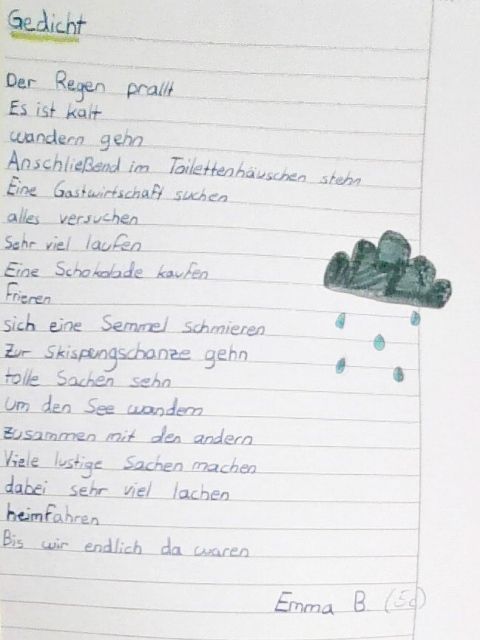 Gedicht
Der Regen prallt
Es ist kalt
wandern gehn
Anschließend im Toilettenhäuschen stehn
Eine Gastwirtschaft suchen
alles versuchen
Sehr viel laufen
Eine Schokolade kaufen
Frieren
sich eine Semmel schmieren
Zur Skispungschanze gehn
tolle Sachen sehn
Um den See wandern
zusammen mit den andern
Viele lustige Sachen machen
dabei sehr viel lachen
heimfahren
Bis wir endlich da waren
Emma B. (5c)